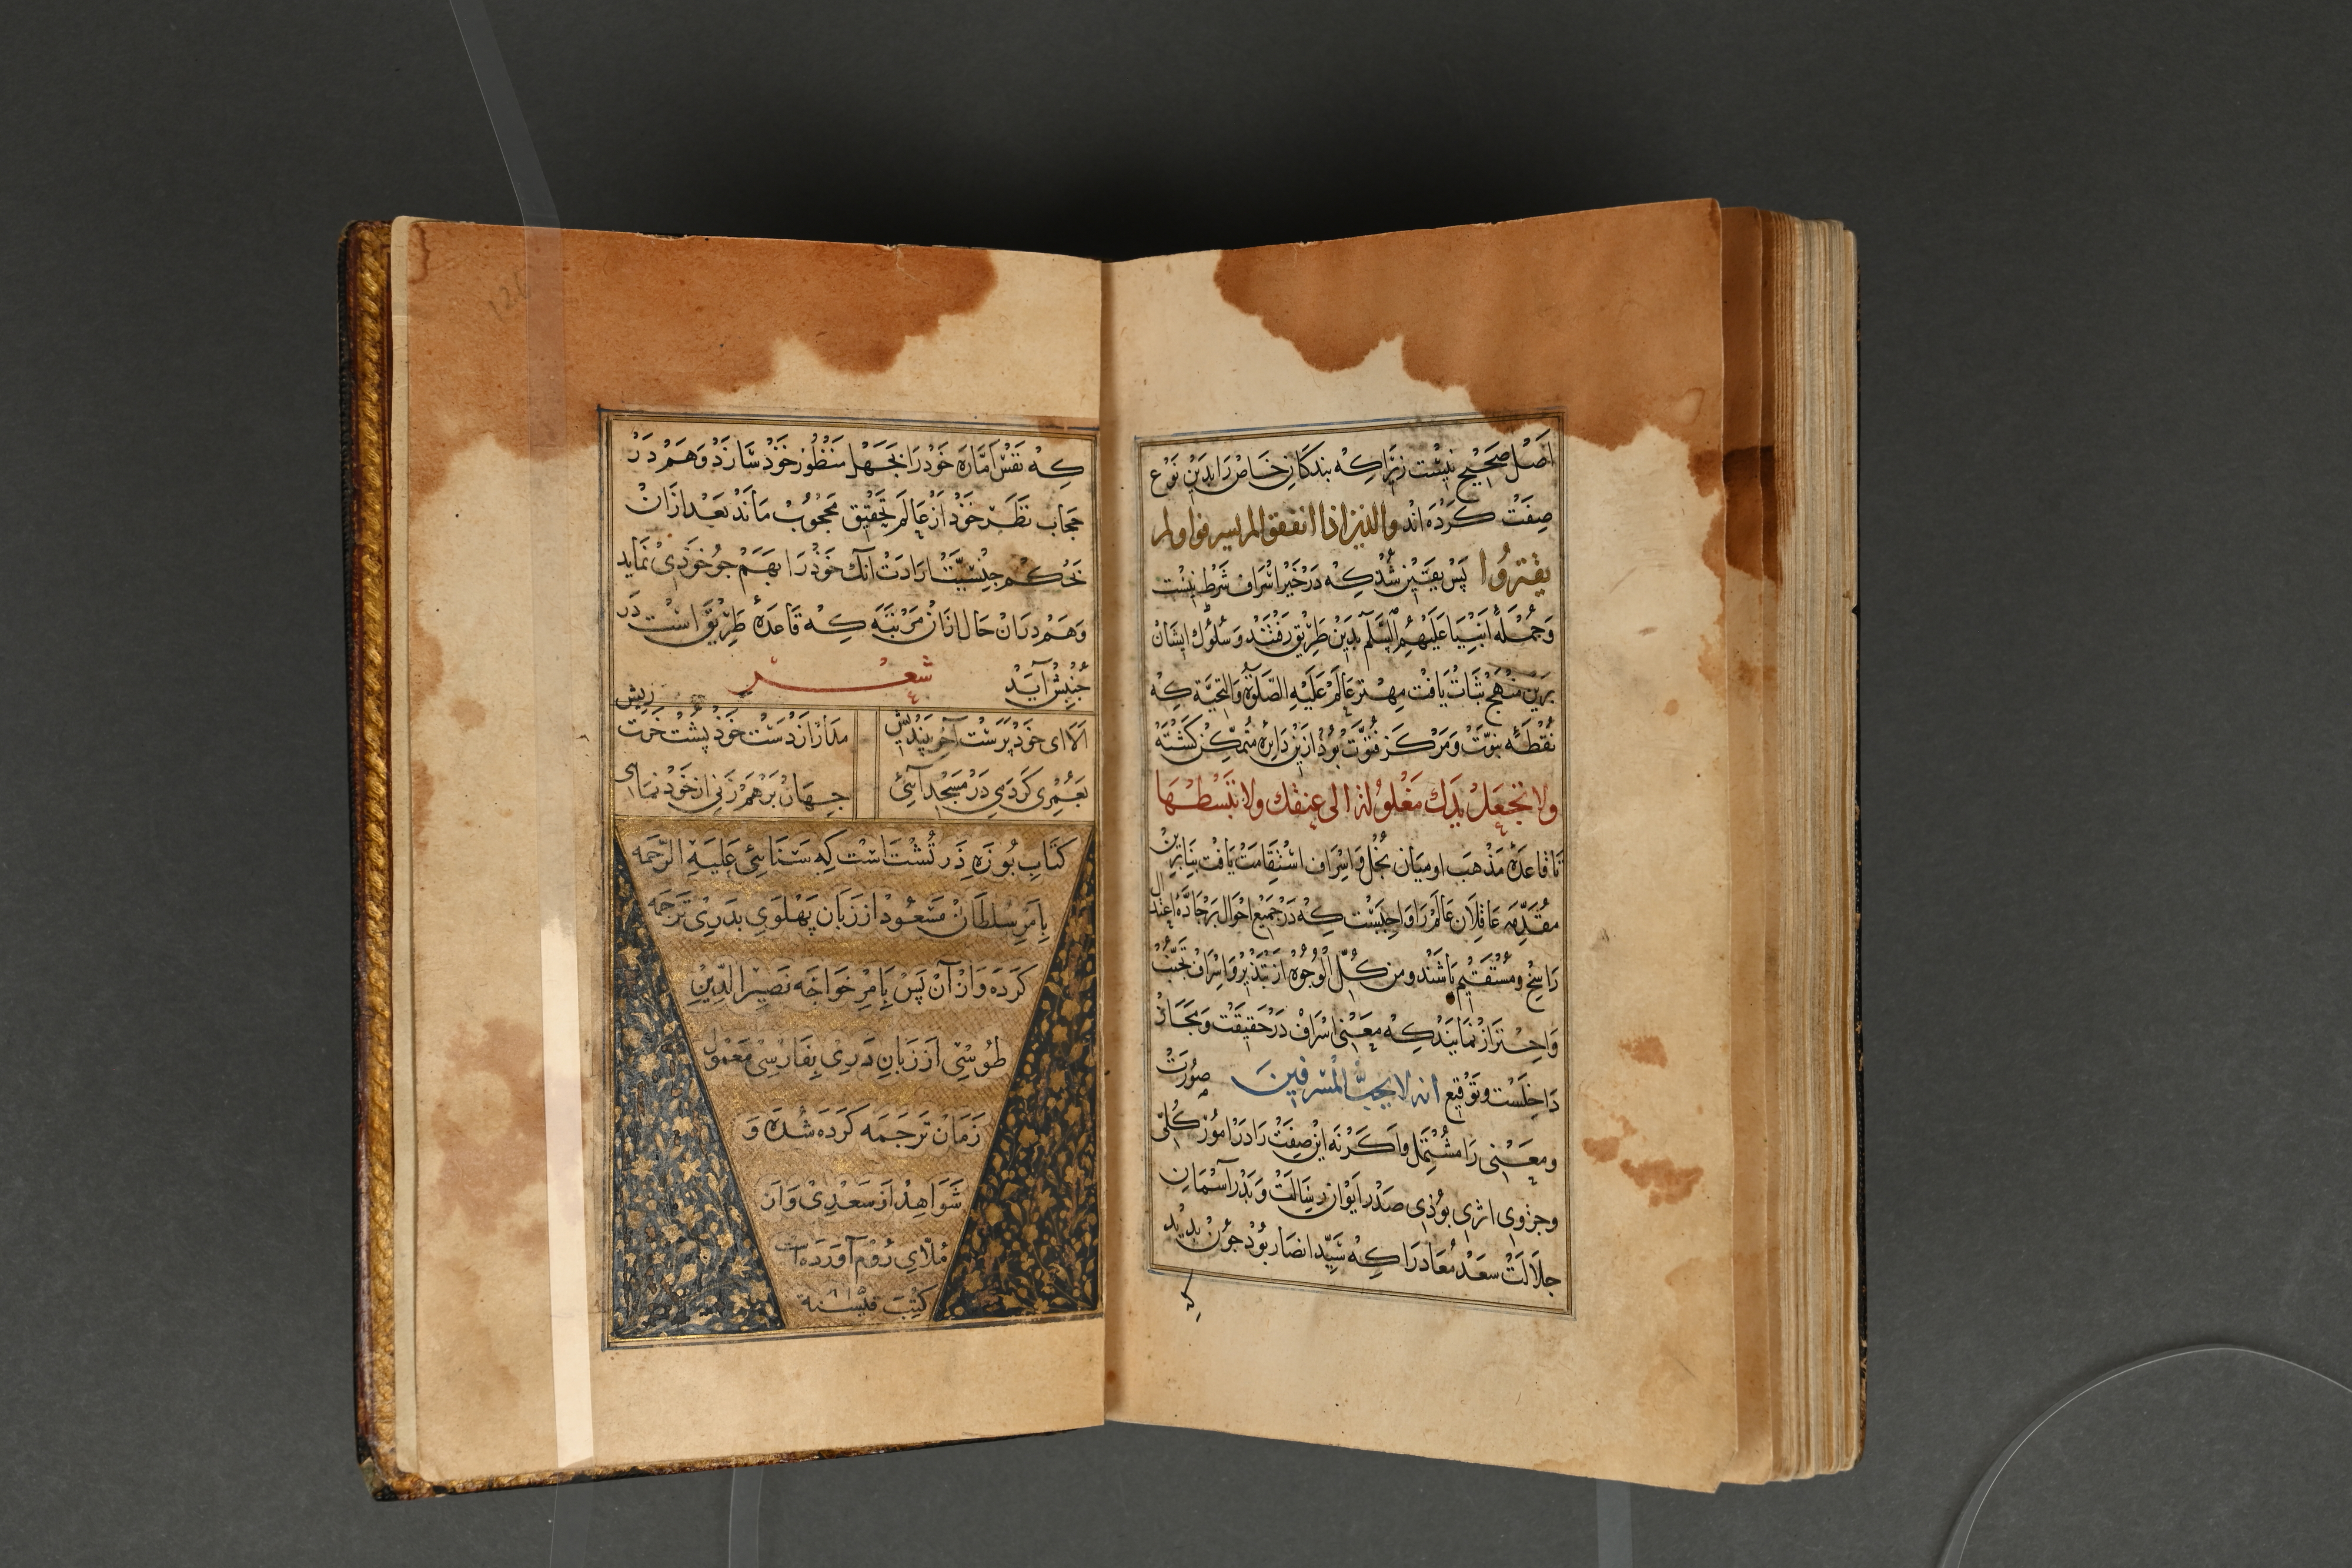 اصل صحیح نیست زیرا که بندکان خاص را بدین نوع
صفت کرده اند والذین اذا انفقوا لم یسرفوا ولم
یقتروا پس یقین شد که در خیر اسراف شرط نیست
وجمله انبیا علیهم السلم بدین طریق رفتند و سلوک ایشان
برین منهج ثبات یافت مهتر عالم علیه الصلوة والتحیة که
نقطه نبوت ومرکز فتوت بود ازین دایره متمکن کشته
ولا تجعل یدک مغلولة الی عنقک ولا تبسطها
تا قاعده مذهب او میان بخل و اسراف استقامت یافت بنابرین
مقدمه عاقلان عالم را واجبست که در جمیع احوال بر جاده اعتدال
راسخ ومستقیم باشند ومن کل الوجوه از تبذیر و اسراف تجنب
واحتراز نمایند که معنی اسراف در حقیقت ومجاز
داخلست وتوقیع انه لا یحب المسرفین صورت
ومعنی را مشتمل واکرنه این صفت را در امور کلی
وجزوی اثری بوذی صدر ایوان رسالت وبدر آسمان
جلالت سعد معاد را که سید انصار بوذ جون بدید
که
که نفس اماره خود را بجهل منظور خوذ سازد وهم در
حجاب نظر خوذ از عالم تحقیق محجوب ماند بعد ازان
بحکم جنسیت ارادت آنک خوذ را بهم جو خوذی نماید
وهم دران حال ازان مرتبه که قاعده طریق است در
جنبش آید شعر
الا ای خود پرست آخر بیندیش مدار از دست خوذ پشت خرت ریش
بعمری کردمی در مسجد آئی جهان برهم زنی از خود نمای
کتاب بوزه ذرتشت است که سنائی علیه الرحمه
بامر سلطان مسعود از زبان پهلوی بدری ترجمه
کرده وازآن پس بامر خواجه نصیر الدین
طوسی از زبان دری بفارسی معمول
زمان ترجمه کرده شده و
شواهد از سعدی و از
ملای روم آورده است
کتب فی سنة